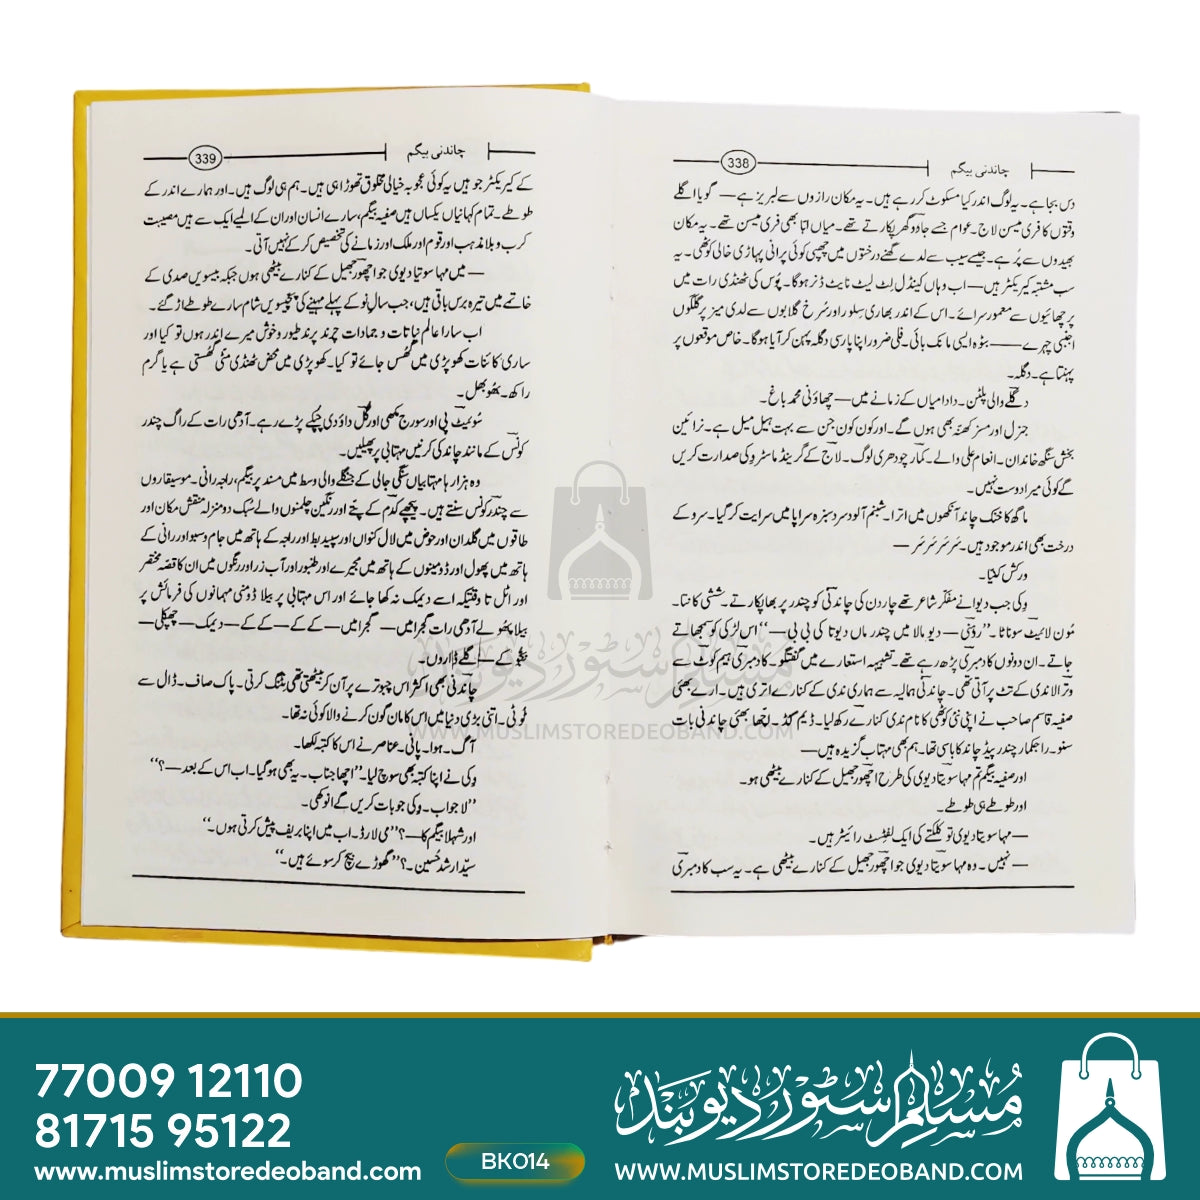 338
چاندنی بیگم
دس بجا ہے۔ یہ لوگ اندر کیا مسکوٹ کر رہے ہیں۔ یہ مکان رازوں سے لبریز ہے — گویا اگلے
وقتوں کا فری میسن لاج۔ عوام جسے جادو گھر پکارتے تھے۔ میاں ابا بھی فری میسن تھے۔ یہ مکان
بھیدوں سے پُر ہے۔ جیسے سیب سے لدے گھنے درختوں میں چھپی کوئی پرانی پہاڑی خالی کوٹھی۔ یہ
سب مشتبہ کیریکٹر ہیں — اب وہاں کینڈل لِٹ لیٹ نایٹ ڈنر ہوگا۔ پُوس کی ٹھنڈی رات میں
پرچھائیوں سے معمور سرائے۔ اس کے اندر بھاری سِلور اور سُرخ گلابوں سے لدی میز پر گلگوں
اجنبی چہرے —— بنوہ ایسی مانک بائی۔ فلی ضرور اپنا پارسی دگلہ پہن کر آیا ہوگا۔ خاص موقعوں پر
پہنتا ہے۔ دگلہ۔
دگلے والی پلٹن۔ دادا میاں کے زمانے میں — چھاؤنی محمد باغ۔
جنرل اور مسز کھنہ بھی ہوں گے۔ اور کون کون جن سے بہت ہیل میل ہے۔ نرائین
بخش سنگھ خاندان۔ انعام علی والے۔ کمار چودھری لوگ۔ لاج کے گرینڈ ماسٹر و کی صدارت کریں
گے کوئی میرا دوست نہیں۔
ماگھ کا خنک چاند آنکھوں میں اترا۔ شبنم آلود سرد سبزہ سراپا میں سرایت کر گیا۔ سرو کے
درخت بھی اندر موجود ہیں۔ سَر سَر سَر سَر —
ورکش کنیا۔
وِکی جب دیوانے مفکّر شاعر تھے چار دن کی چاندنی کو چندر پربھا پکارتے۔ ششی کانتا۔
مُون لائیٹ سوناٹا۔ ”روہنی — دیو مالا میں چندر ماں دیوتا کی بی بی —“ اس لڑکی کو سمجھاتے
جاتے۔ ان دونوں کادمبری پڑھ رہے تھے۔ تشبیہہ استعارے میں گفتگو۔ کادمبری ہیم کوٹ سے
وترالا ندی کے تٹ پر آتی تھی۔ چاندنی ہمالیہ سے ہماری ندی کے کنارے اتری ہیں۔ ارے بھئی
صفیہ قاسم صاحب نے اپنی نئی کوٹھی کا نام ندی کنارے رکھ لیا۔ ڈیم گڈ۔ اچھا بھئی چاندنی بات
سنو۔ راجکمار چندر پیڈ چاند کا باسی تھا۔ ہم بھی مہتاب گزیدہ ہیں —
اور صفیہ بیگم تم مہاسویتا دیوی کی طرح اچھور جھیل کے کنارے بیٹھی ہو۔
اور طوطے ہی طوطے۔
— مہاسویتا دیوی تو کلکتے کی ایک لفٹسٹ رائیٹر ہیں۔
— نہیں۔ وہ مہاسویتا دیوی جو اچھور جھیل کے کنارے بیٹھی ہے۔ یہ سب کادمبری
339
چاندنی بیگم
کے کیریکٹر جو ہیں یہ کوئی عجوبہ خیالی مخلوق تھوڑا ہی ہیں۔ ہم ہی لوگ ہیں۔ اور ہمارے اندر کے
طوطے۔ تمام کہانیاں یکساں ہیں صفیہ بیگم، سارے انسان اور ان کے المیے ایک سے ہیں مصیبت
کرب و بلا مذہب اور قوم اور ملک اور زمانے کی تخصیص کر کے نہیں آتی۔
— میں مہاسوتیا دیوی جو اچھور جھیل کے کنارے بیٹھی ہوں جبکہ بیسویں صدی کے
خاتمے میں تیرہ برس باقی ہیں، جب سالِ نو کے پہلے مہینے کی پچیسویں شام سارے طوطے اڑ گئے۔
اب سارا عالم نباتات و جمادات چرند پرند طیور و خوش میرے اندر ہوں تو کیا اور
ساری کائنات کھوپڑی میں گھُس جائے تو کیا۔ کھوپڑی میں محض ٹھنڈی مٹی گھُستی ہے یا گرم
راکھ۔ بھُوبھل۔
سُوئیٹ پی اور سورج مکھی اور گلِ داؤدی چپکے پڑے رہے۔ آدھی رات کے راگ چندر
کونس کے مانند چاند کی کرنیں مہتابی پر پھیلیں۔
وہ ہزارہا مہتابیاں سنگی جالی کے جنگلے والی وسط میں مسند پر بیگم، راجہ رانی۔ موسیقاروں
سے چندر کونس سنتے ہیں۔ پیچھے کدم کے پتے اور رنگین چلمنوں والے سُبک دو منزلہ منقش مکان اور
طاقوں میں گلدان اور حوض میں لال کنواں اور سپید بط اور راجہ کے ہاتھ میں جام و سبو اور رانی کے
ہاتھ میں پھول اور ڈومینوں کے ہاتھ میں مجیرے اور طنبور اور آب زر اور رنگوں میں ان کا قصّہ مختصر
اور اٹل تا وقتیکہ اسے دیمک نہ کھا جائے اور اس مہتابی پر بیلا ڈومنی مہمانوں کی فرمائش پر
بیلا پھولے آدھی رات گجرا میں — گجرا میں — کے کے — کے کے — دیمک — چھپکلی —
کے — گلے ڈاروں۔
چاندنی بھی اکثر اس چبوترے پر آن کر بیٹھتی تھی بٹنگ کرتی۔ پاک صاف۔ ڈال سے
ٹوٹی۔ اتنی بڑی دنیا میں اس کا مان گون کرنے والا کوئی نہ تھا۔
آگ۔ ہوا۔ پانی۔ عناصر نے اس کا کتبہ لکھا۔
وِکی نے اپنا کتبہ بھی سوچ لیا۔ ”اچھا جناب۔ یہ بھی ہو گیا۔ اب اس کے بعد —؟“
”لا جواب۔ وِکی جو بات کریں گے انوکھی۔
اور شہلا بیگم کا —؟“ ”می لارڈ۔ اب میں اپنا بریف پیش کرتی ہوں۔“
سیّد ارشد حُسین۔؟“ ”گھوڑے بیچ کر سوئے ہیں۔“
مسلم سٹور دیوبند
WWW.MUSLIMSTOREDEOBAND.COM
77009 12110
81715 95122
www.muslimstoredeoband.com
BK014
مُسلم سٹور دیوبند
WWW.MUSLIMSTOREDEOBAND.COM